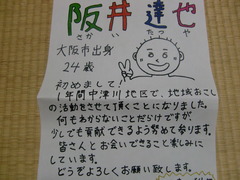 阪井達也
さかい たつや
大阪市出身
24歳
初めまして!
1年間中津川地区で、地域おこし
の活動をさせて頂くことになりました。
何もわからないことだけですが、
少しでも貢献できるよう努めて参ります。
皆さんとお会いできること楽しみに
しています。
どうぞよろしくお願い致します。